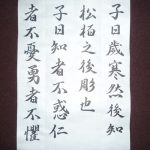 子曰歳寒然後知
松柏之後彫也
子曰知者不惑仁
者不憂勇者不懼